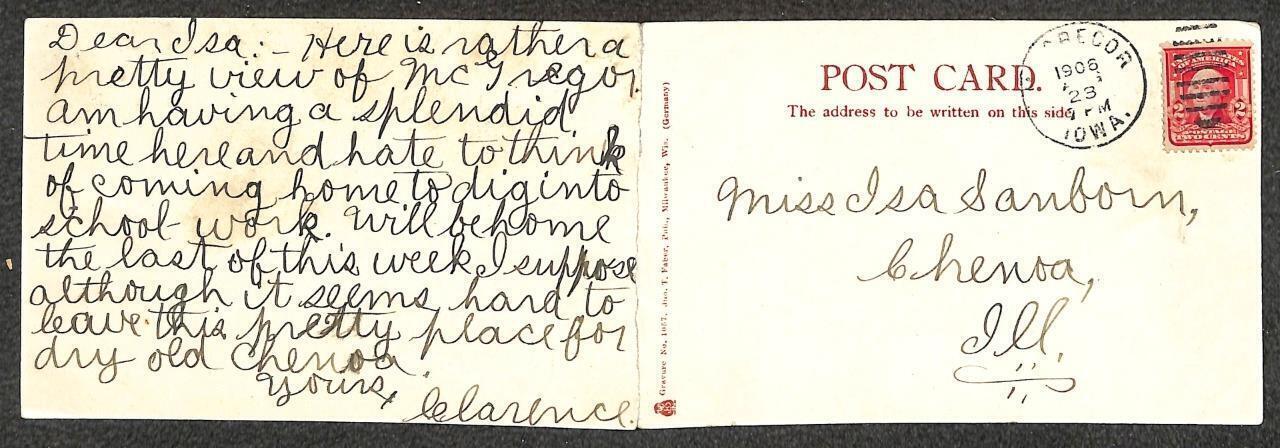 Dear Isa:- Here is rather a
pretty view of McGregor.
am having a splendid
time here and hate to think
of coming home to dig into
school-work. Will be home
the last of this week I suppose
although it seems hard to
leave this pretty place for
dry old Chenoa.
Yours,
Clarence.
Gravure No. 1057. Jno. T. Faber, Pub., Milwaukee, Wis. (Germany)
POST CARD.
The address to be written on this side
GREGOR
1906
23
PM
IOWA.
OF AMERICA
2 2
POSTAGE
TWO CENTS
Miss Isa Sanborn,
Chenoa,
Ill.